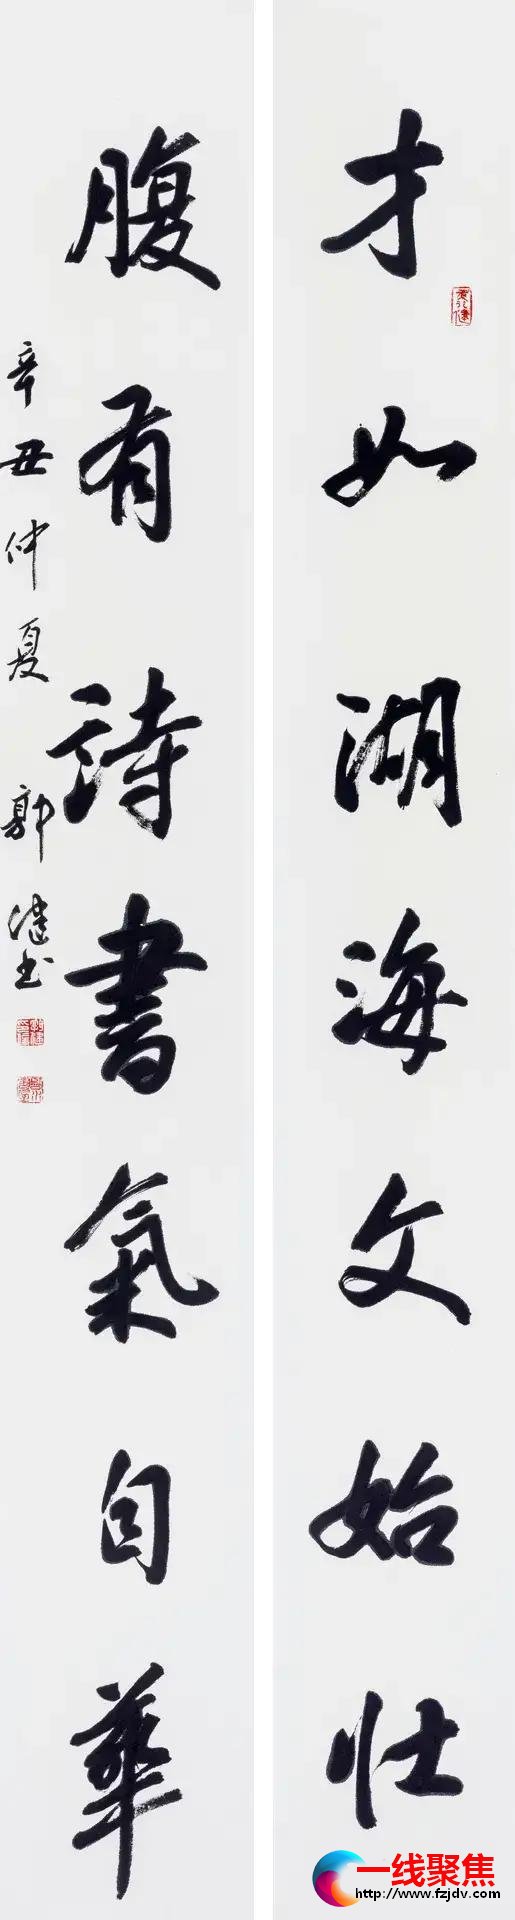 才如湖海文始壮
腹有詩書氣自華
辛丑仲夏 郭健书
一线聚焦
http://www.fzjdv.com